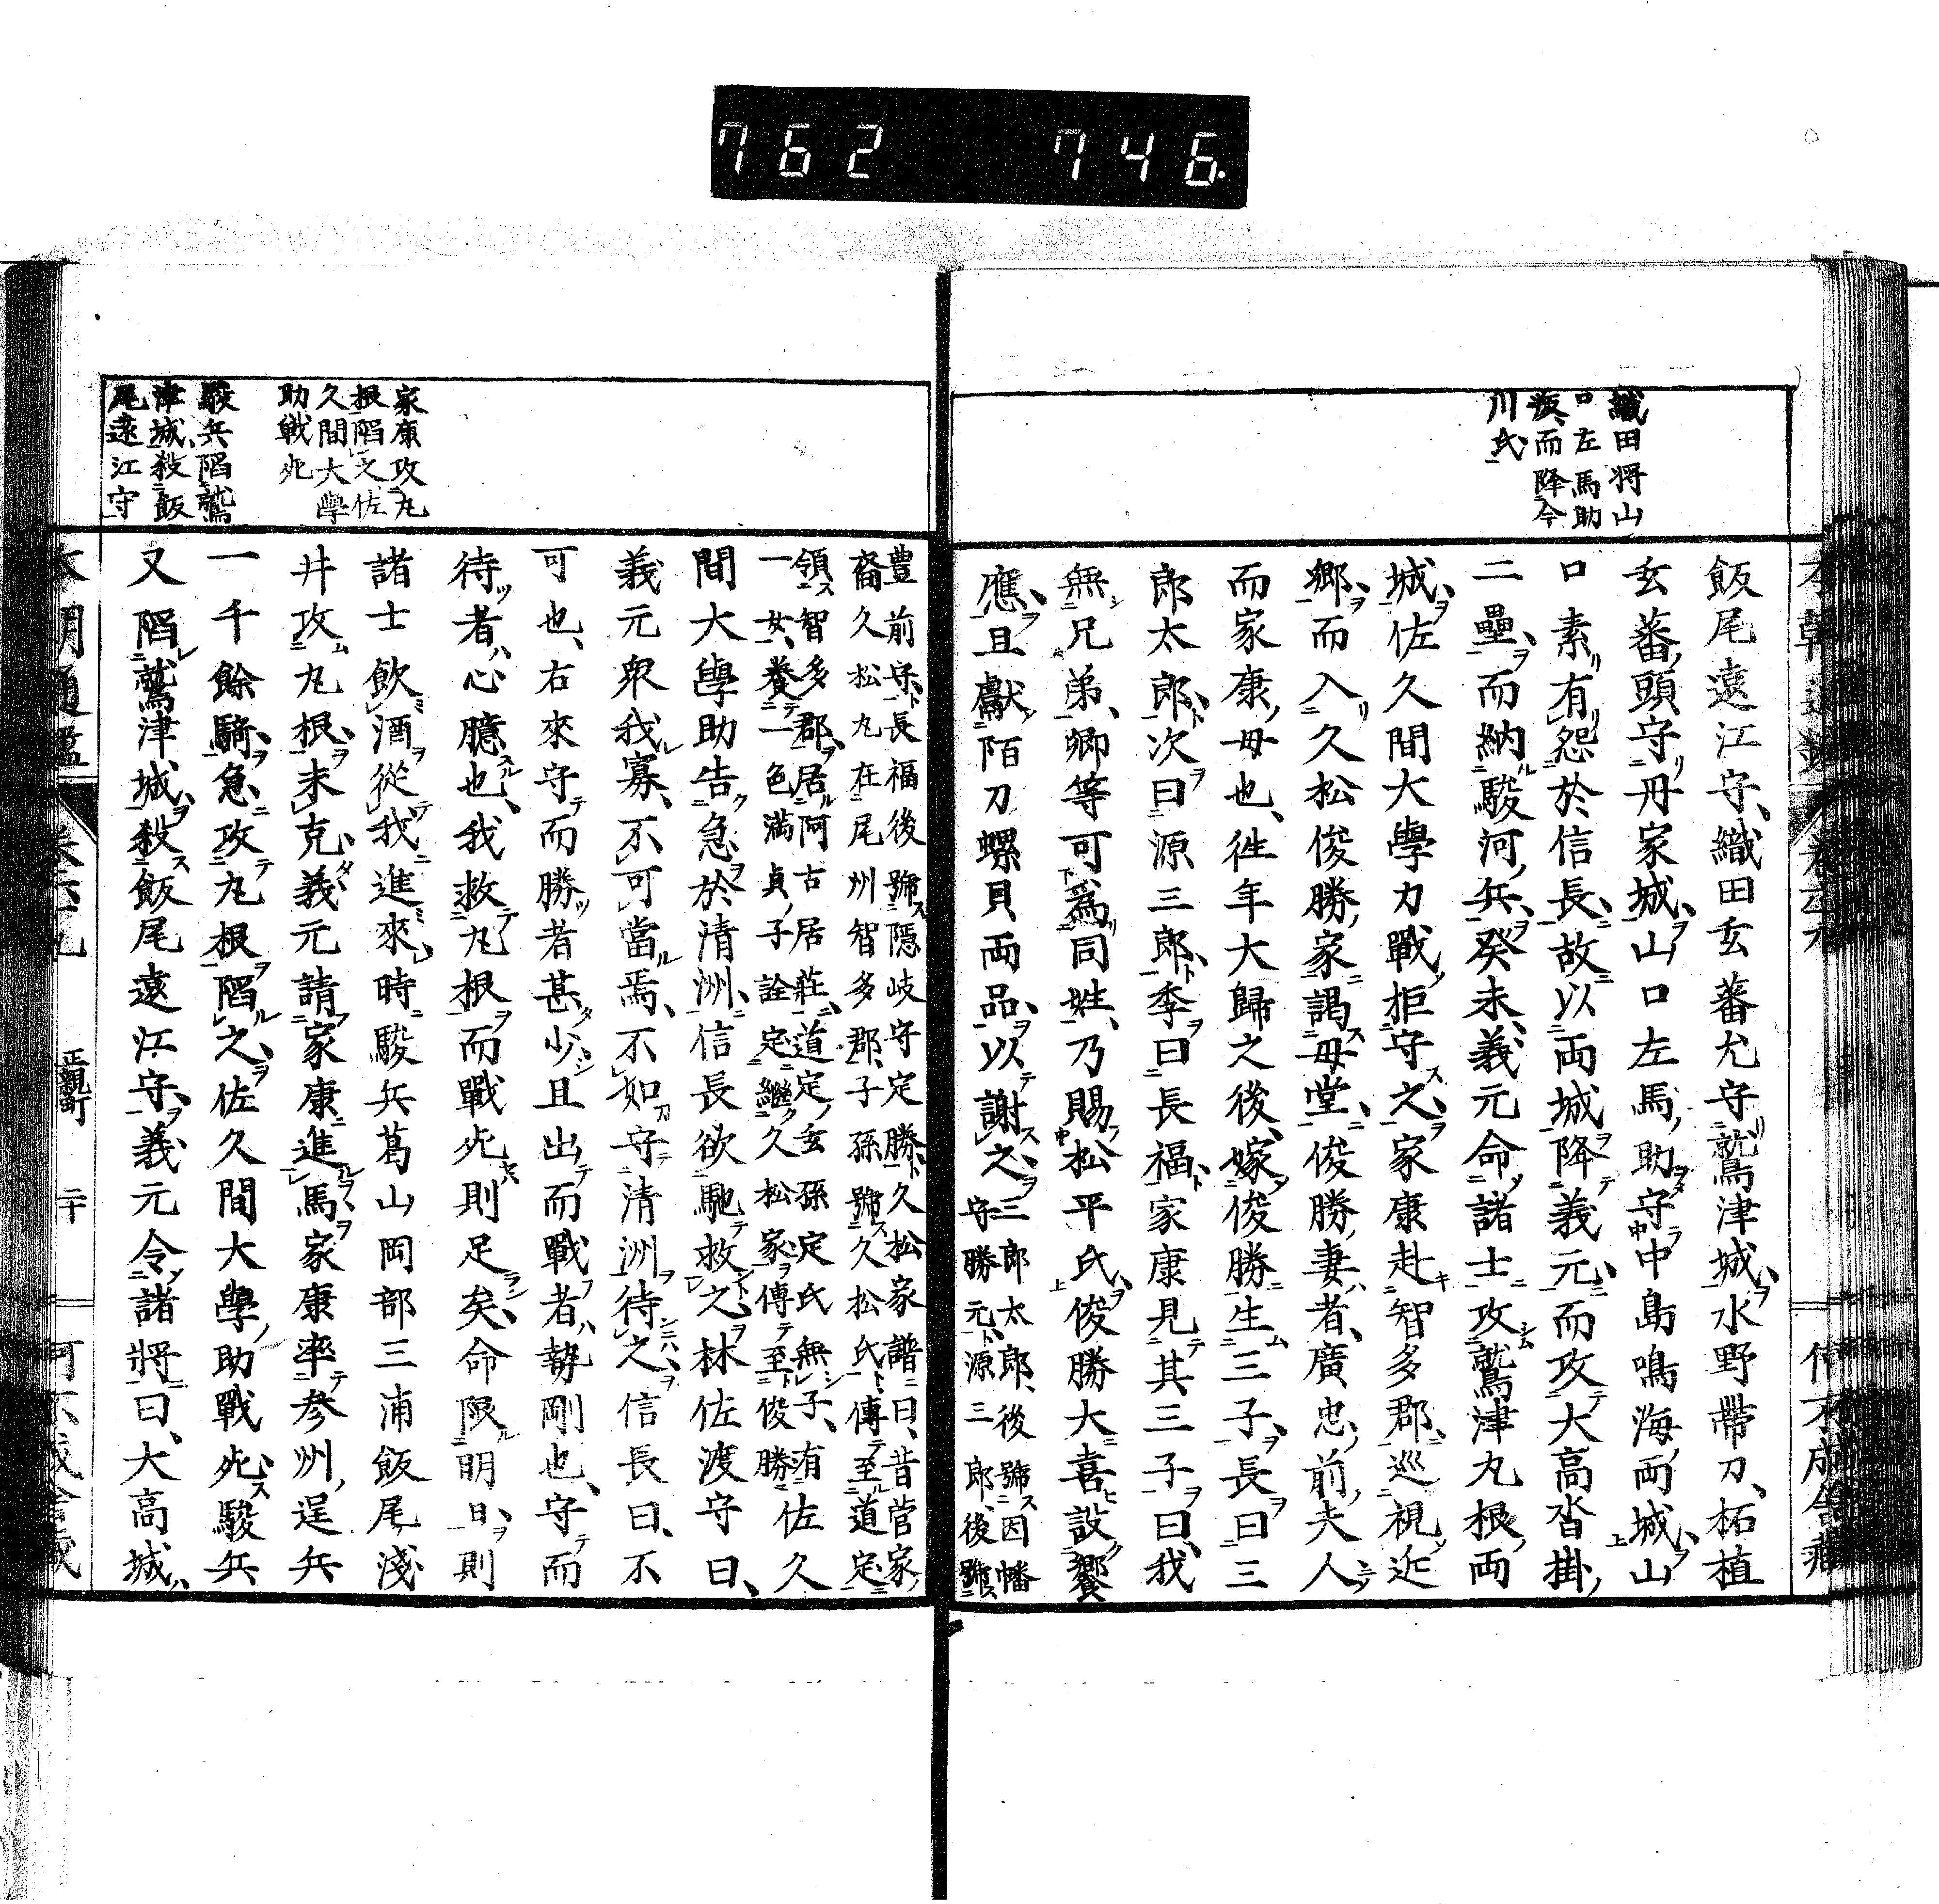 762 746
織田将山
口左馬助
叛而降今
川氏
飯尾遠江守、織田玄蕃允守鷲津城、水野帶刀、柘植
玄蕃頭守丹家城、山口左馬助守中島鳴海両城、山
口素有怨於信長、故以両城降義元、而攻大高沓掛
二壘、而納駿河兵、癸未、義元命諸士攻鷲津丸根両
城、佐久間大學力戰拒守之、家康赴智多郡、巡視近
郷、而入久松俊勝家謁母堂、俊勝妻者、廣忠前夫人
而家康母也、徃年大歸之後、嫁俊勝生三子、長曰三
郎太郎、次曰源三郎、季曰長福、家康見其三子曰、我
無兄弟、卿等可爲同姓、乃賜松平氏、俊勝大喜設饗
應、且獻陌刀螺貝両品、以謝之、
三郎太郎、後號因幡
守勝元、源三郎、後號
家康攻丸
根陷之佐
久間大學
助戰死
駿兵陷鷲
津城殺飯
尾遠江守
豊前守、長福後號隱岐守定勝、久松家譜曰、昔菅家
裔久松丸在尾州智多郡、子孫號久松氏、傳至道定
領智多郡、居阿古居莊、道定玄孫定氏無子、有
一女、養一色満貞子詮定、繼久松家、傳至俊勝
佐久
間大學助告急於清洲、信長欲馳救之、林佐渡守曰、
義元衆我寡、不可當焉、不如守清洲待之、信長曰、不
可也、右來守而勝者甚少、且出而戰者勢剛也、守而
待者心臆也、我救丸根而戰死則足矣、命限明日、則
諸士飲酒從我進來、時駿兵葛山岡部三浦飯尾淺
井攻丸根、未克、義元請家康進馬、家康率參州逞兵
一千餘騎、急攻丸根陷之、佐久間大學助戰死、駿兵
又陷鷲津城、殺飯尾遠江守、義元令諸將曰、大高城
正親町 二十